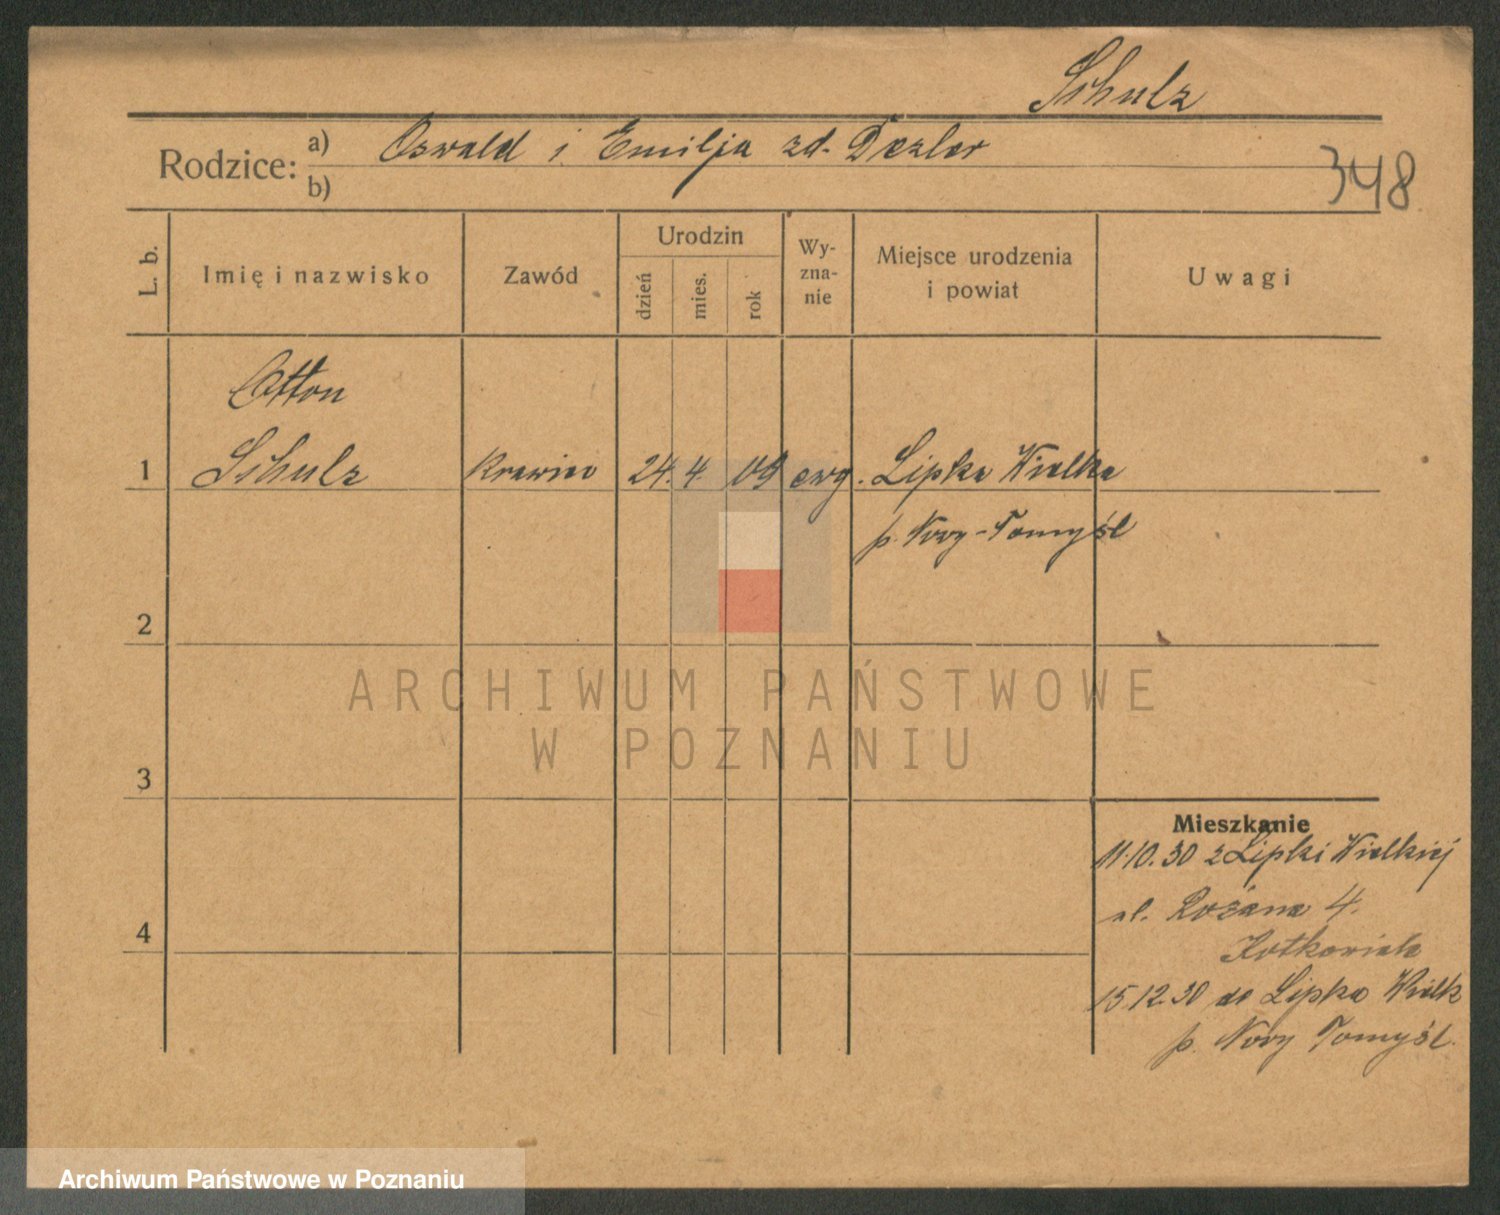 Schulz
Rodzice: a) Oswald i Emilja zd. Dezler
b)
348
L. b.
Imię i nazwisko
Zawód
Urodzin
dzień
mies.
rok
Wy-
zna-
nie
Miejsce urodzenia
i powiat
Uwagi
Otton
1 Schulz krawiec 24. 4 09 ewg. Lipka Wielka
p. Nowy-Tomyśl
2
3
4
Mieszkanie
11.10.30 z Lipki Wielkiej
ul. Różana 4.
15.12.30 do Lipka Wielk
p. Nowy Tomyśl.
ARCHIWUM PAŃSTWOWE
W POZNANIU
Archiwum Państwowe w Poznaniu